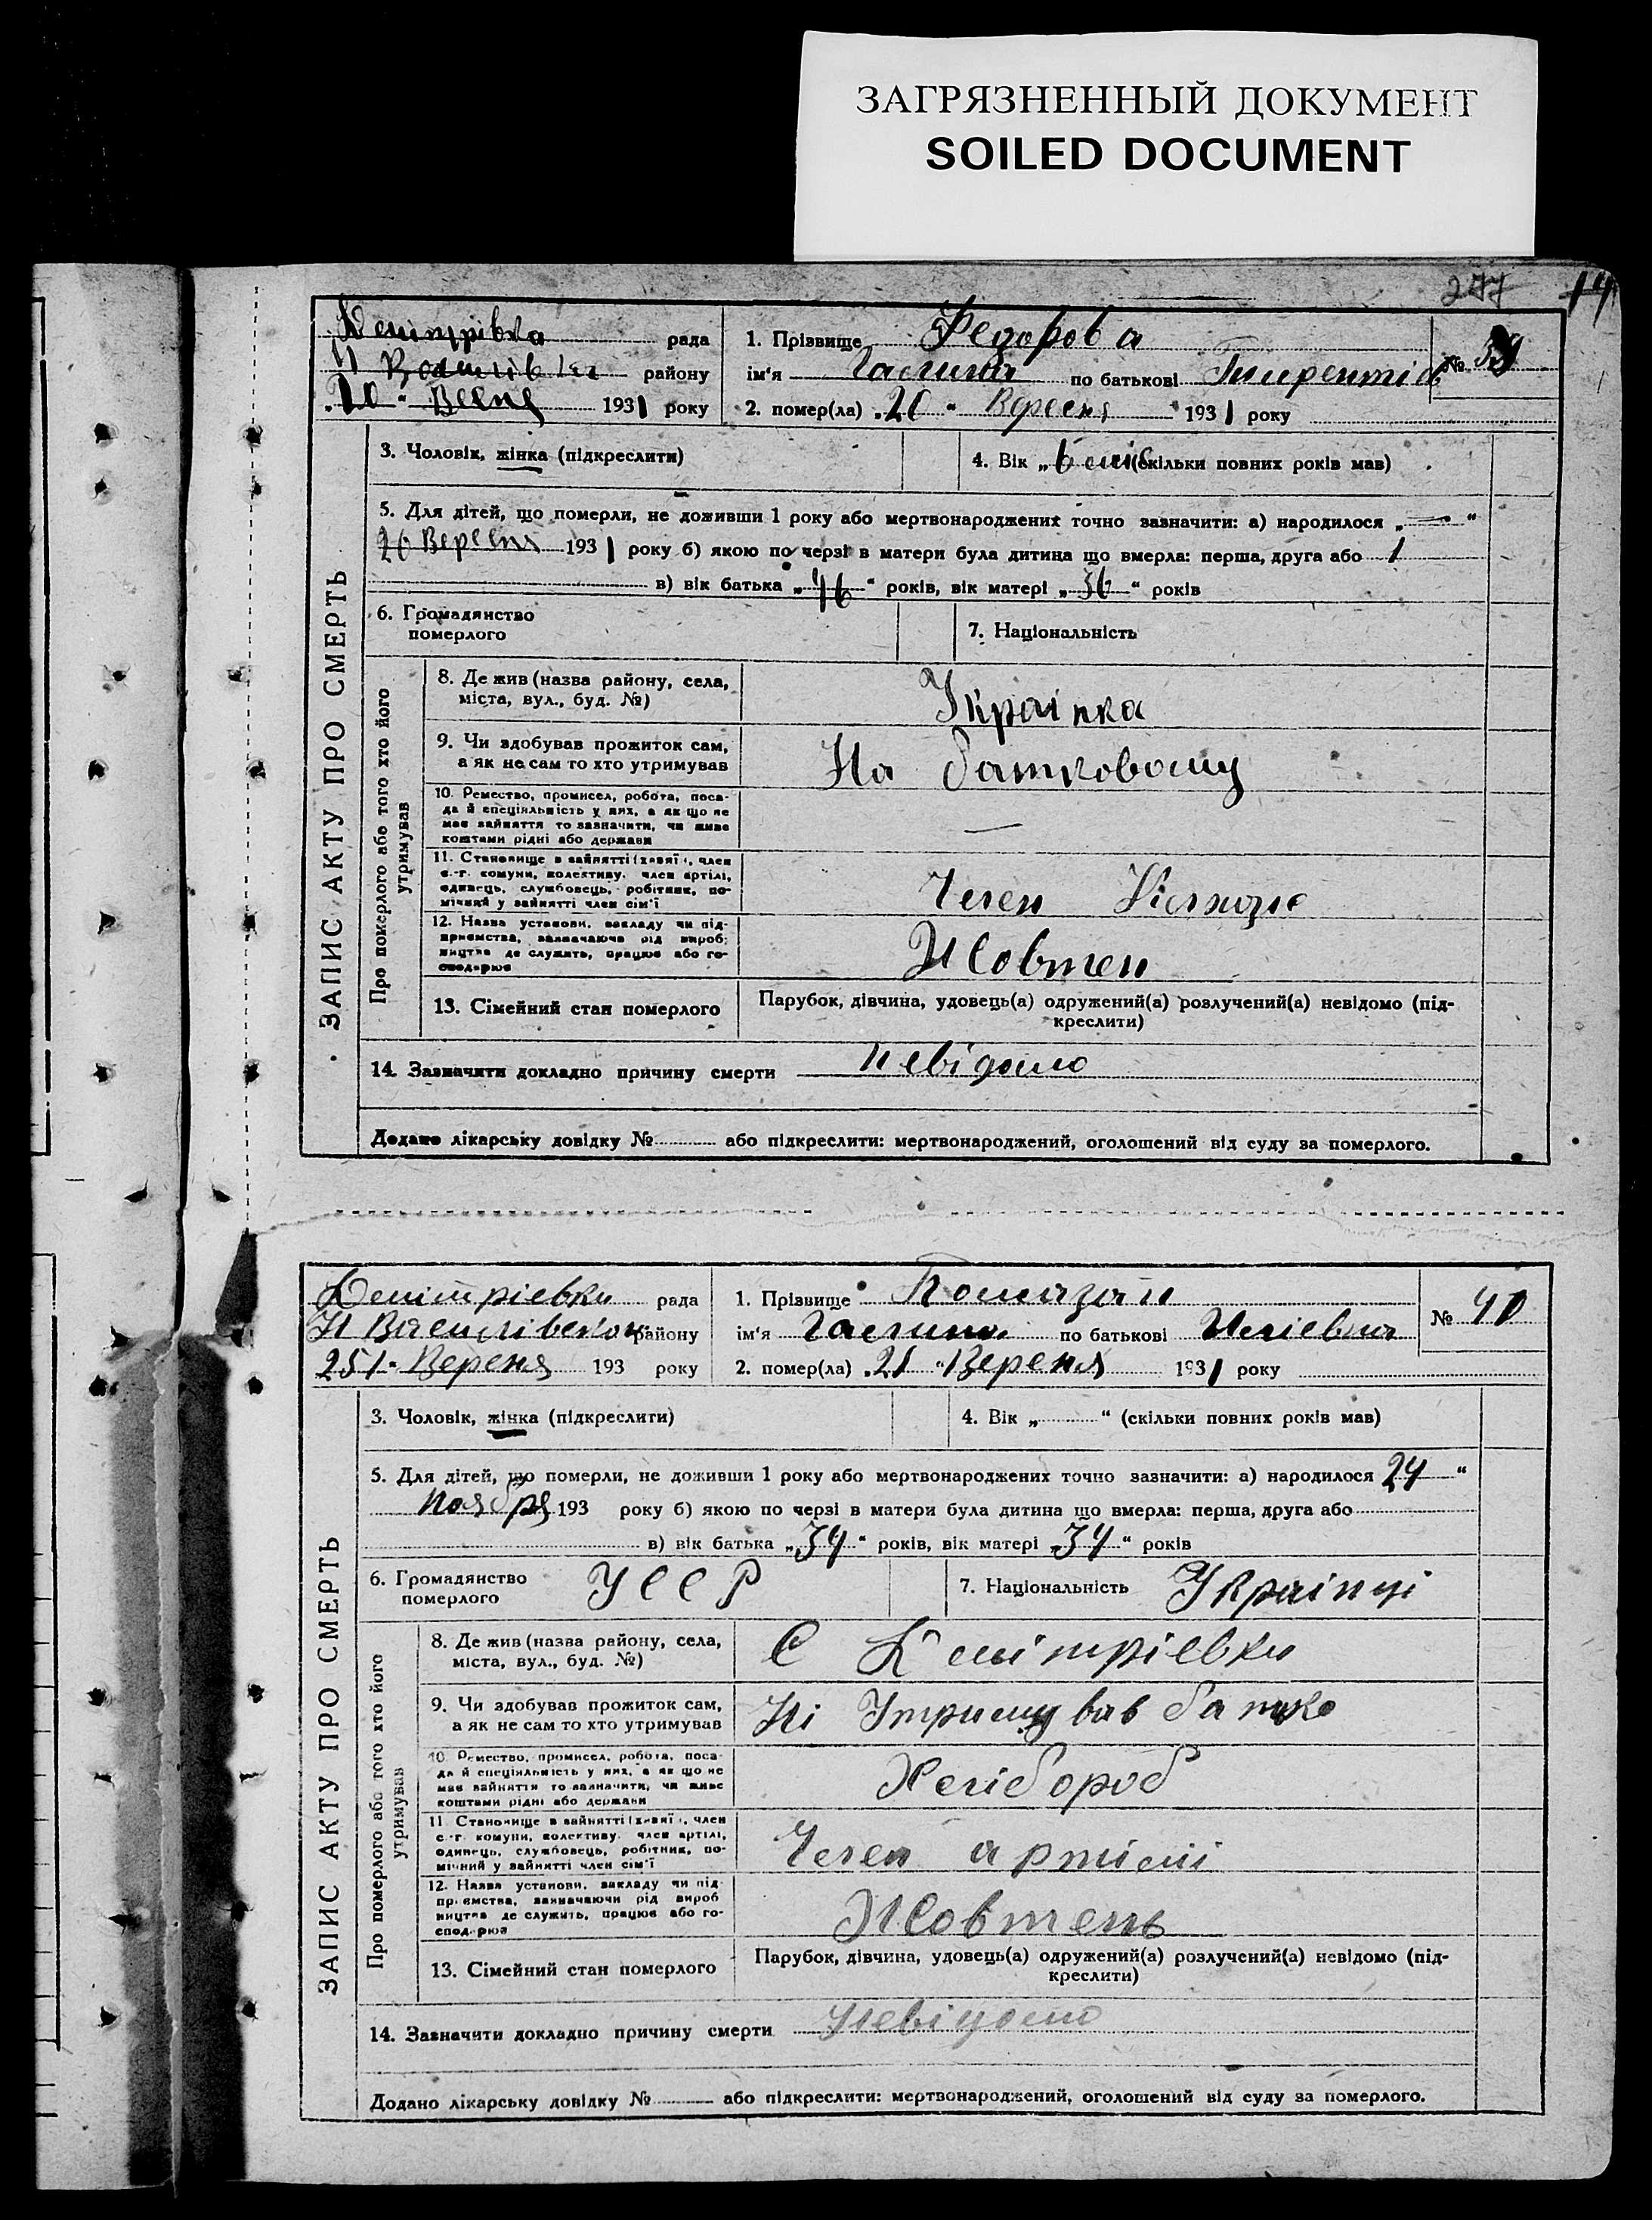 ЗАГРЯЗНЕННЫЙ ДОКУМЕНТ
SOILED DOCUMENT
277 14
рада
району
1931 року
1. Прізвище Федорова
ім'я Галина по батькові
№ 39
2. помер(ла) „20 " Вересня 1931 року
ЗАПИС АКТУ ПРО СМЕРТЬ
3. Чоловік, жінка (підкреслити)
4. Вік „ 6 " (скільки повних років мав)
5. Для дітей, що померли, не доживши 1 року або мертвонароджених точно зазначити: а) народилося „ — "
20 Вересня 1931 року б) якою по черзі в матери була дитина що вмерла: перша, друга або 1
в) вік батька „ 46 " років, вік матері „ 36 " років
6. Громадянство
померлого
7. Національність
Про померлого або того хто його
утримував
8. Де жив (назва району, села,
міста, вул., буд. №)
Украінка
9. Чи здобував прожиток сам,
а як не сам то хто утримував
На батковому
10. Ремество, промисел, робота, поса-
да й спеціяльність у них, а як що не
має зайняття то зазначити, чи живе
коштами рідні або держави
—
11. Становище в зайнятті (хазяї, член
с.-г. комуни, колективу, член артілі,
одинець, службовець, робітник, по-
мічний у зайнятті член сім'ї
Член
12. Назва установи, закладу чи під-
приємства, зазначаючи рід вироб-
ництва де служить, працює або го-
сподарює
Жовтен
13. Сімейний стан померлого
Парубок, дівчина, удовець(а) одружений(а) розлучений(а) невідомо (під-
креслити)
14. Зазначити докладно причину смерти невідомо
Додано лікарську довідку № або підкреслити: мертвонароджений, оголошений від суду за померлого.
Демітріевки рада
Н Василівском району
193 року
1. Прізвище Помазан
ім'я Галина по батькові Ілівна
№ 40
2. помер(ла) „21 " Вереня 1931 року
ЗАПИС АКТУ ПРО СМЕРТЬ
3. Чоловік, жінка (підкреслити)
4. Вік „ " (скільки повних років мав)
5. Для дітей, що померли, не доживши 1 року або мертвонароджених точно зазначити: а) народилося 24 "
Ноября 193 року б) якою по черзі в матери була дитина що вмерла: перша, друга або
в) вік батька „ 34 " років, вік матері „ 34 " років
6. Громадянство
померлого
УССР
7. Національність Украінці
Про померлого або того хто його
утримував
8. Де жив (назва району, села,
міста, вул., буд. №)
С Демітріевки
9. Чи здобував прожиток сам,
а як не сам то хто утримував
Ні Утримував батко
10. Ремество, промисел, робота, поса-
да й спеціяльність у них, а як що не
має зайняття то зазначити, чи живе
коштами рідні або держави
Хлібороб
11. Становище в зайнятті (хазяї, член
с.-г. комуни, колективу, член артілі,
одинець, службовець, робітник, по-
мічний у зайнятті член сім'ї
Член артілі
12. Назва установи, закладу чи під-
приємства, зазначаючи рід вироб-
ництва де служить, працює або го-
сподарює
Жовтень
13. Сімейний стан померлого
Парубок, дівчина, удовець(а) одружений(а) розлучений(а) невідомо (під-
креслити)
14. Зазначити докладно причину смерти Невідомо
Додано лікарську довідку № або підкреслити: мертвонароджений, оголошений від суду за померлого.